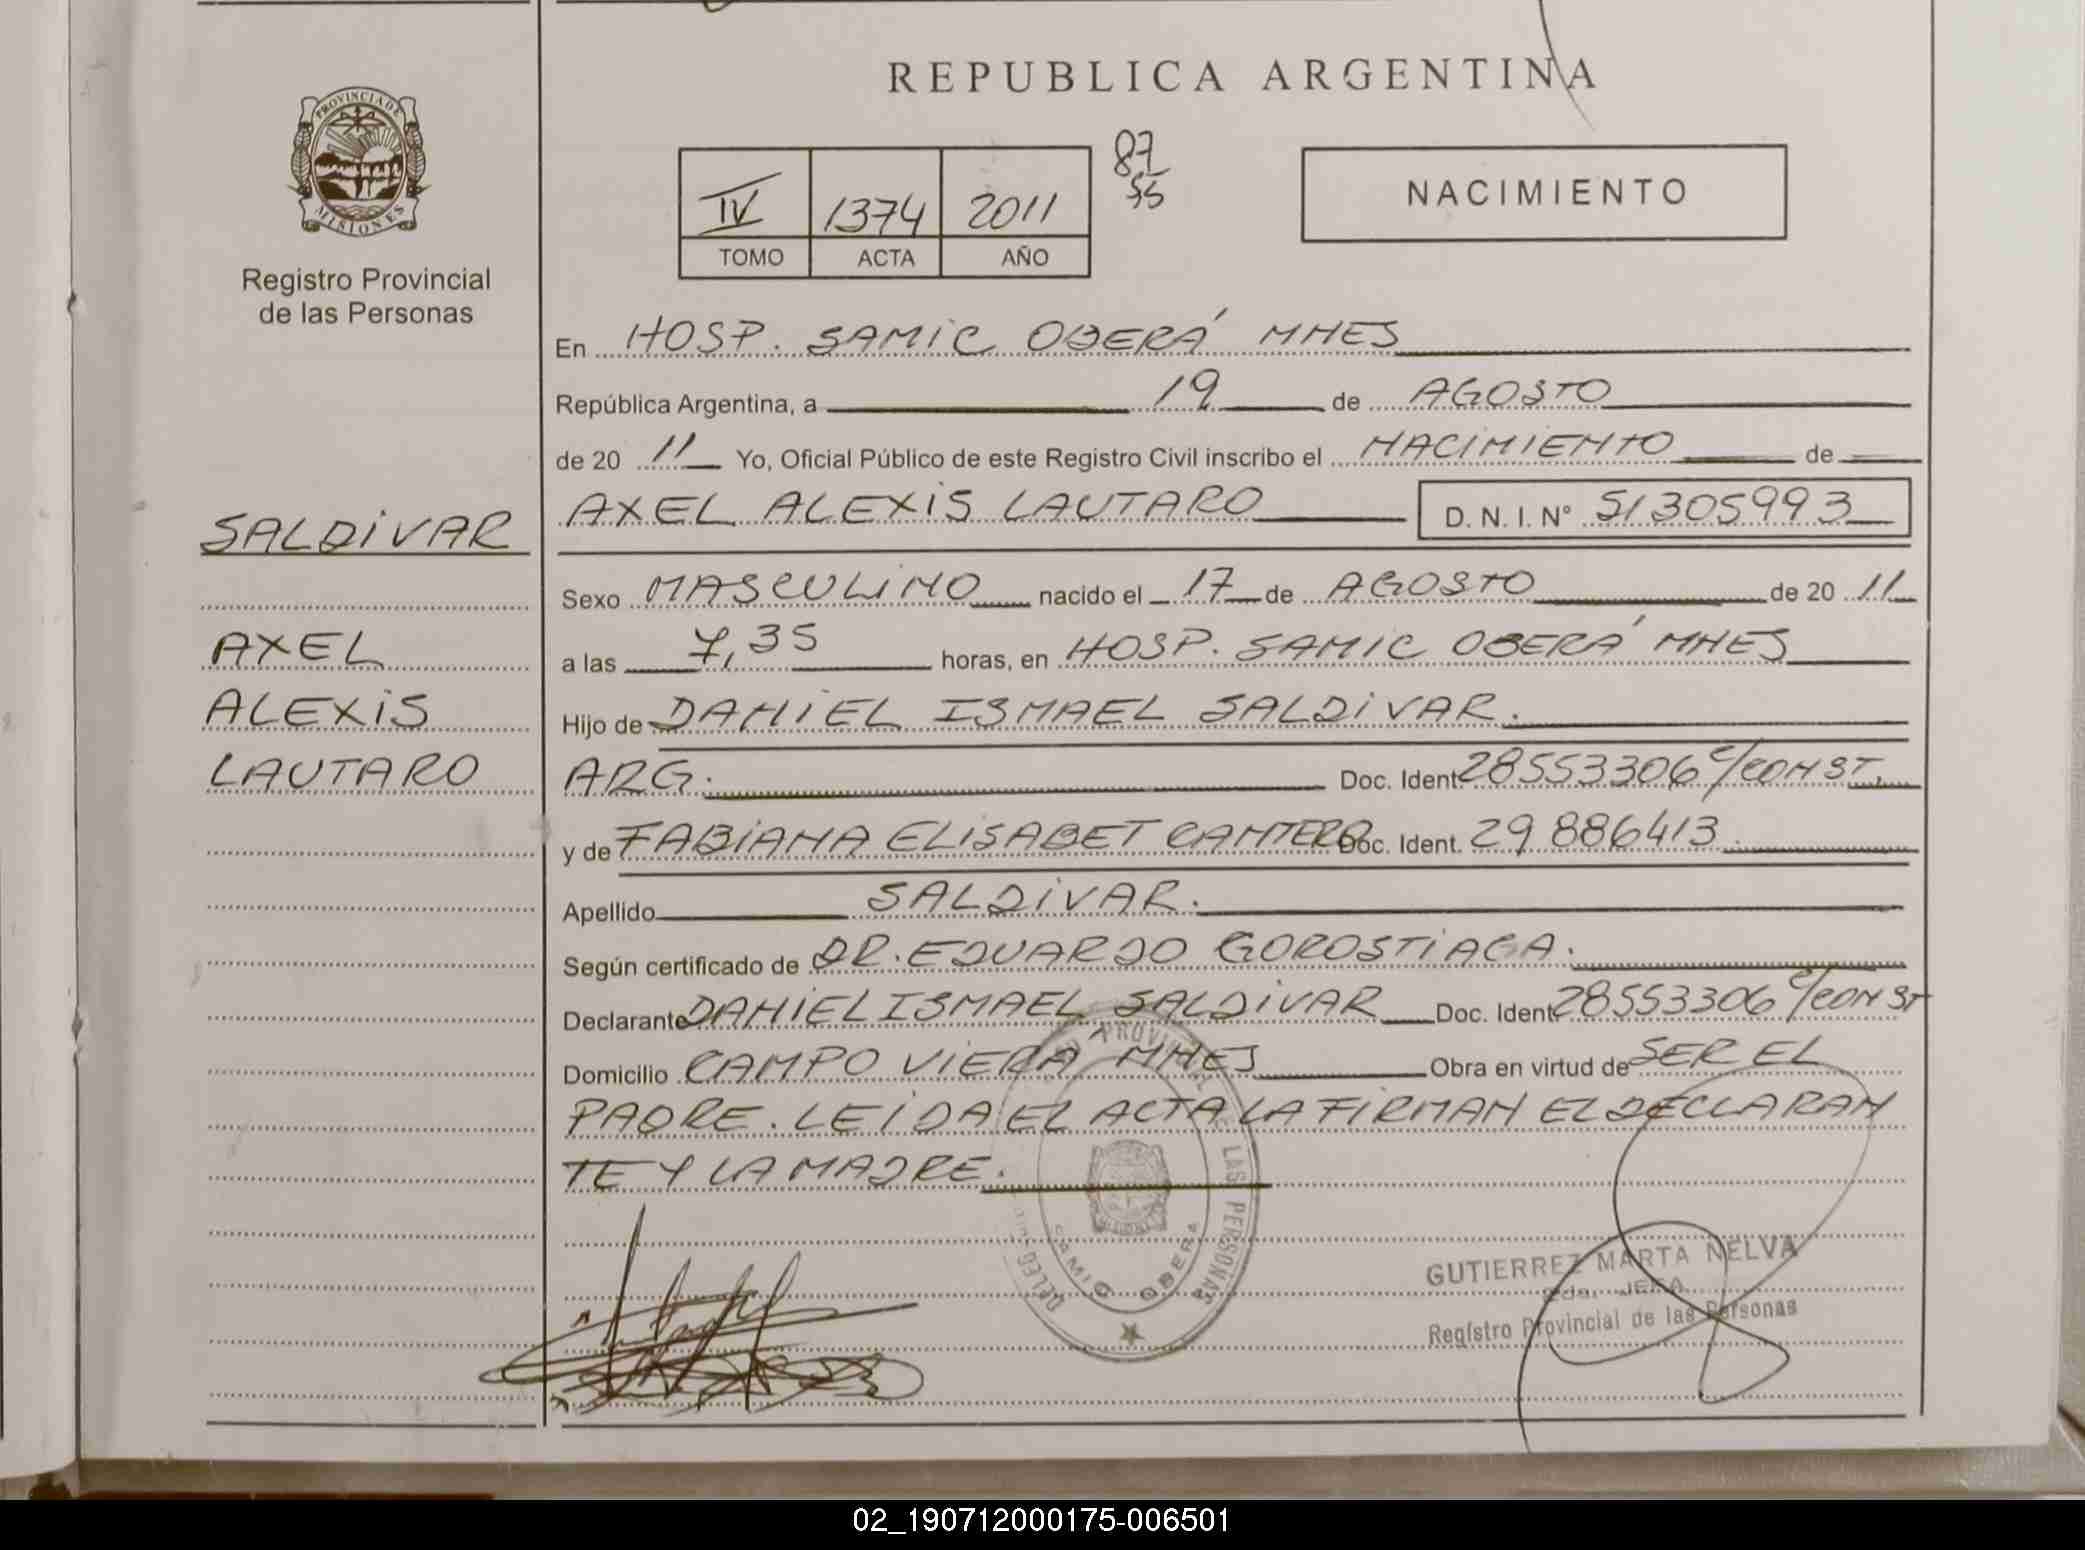 REPUBLICA ARGENTINA
PROVINCIA DE
MISIONES
Registro Provincial
de las Personas
IV 1374 2011
TOMO ACTA AÑO
87
55
NACIMIENTO
En HOSP. SAMIC OBERÁ MNES
República Argentina, a 19 de AGOSTO
de 20 11 Yo, Oficial Público de este Registro Civil inscribo el NACIMIENTO de
AXEL ALEXIS LAUTARO D. N. I. N° 51305993
SALDIVAR
AXEL
ALEXIS
LAUTARO
Sexo MASCULINO nacido el 17 de AGOSTO de 20 11
a las 7,35 horas, en HOSP. SAMIC OBERÁ MNES
Hijo de DANIEL ISMAEL SALDIVAR.
ARG. Doc. Ident. 28553306 c/CONST.
y de FABIANA ELISABET CANTERO Doc. Ident. 29886413
Apellido SALDIVAR.
Según certificado de DR. EDUARDO GOROSTIAGA.
Declarante DANIEL ISMAEL SALDIVAR Doc. Ident. 28553306 c/CONST
Domicilio CAMPO VIERA MNES Obra en virtud de SER EL
PADRE. LEIDA EL ACTA LA FIRMAN EL DECLARAN
TE Y LA MADRE.
LAS PERSONAS
SAMIC OBERA
GUTIERREZ MARTA NELVA
JEFA
Registro Provincial de las Personas
02_190712000175-006501